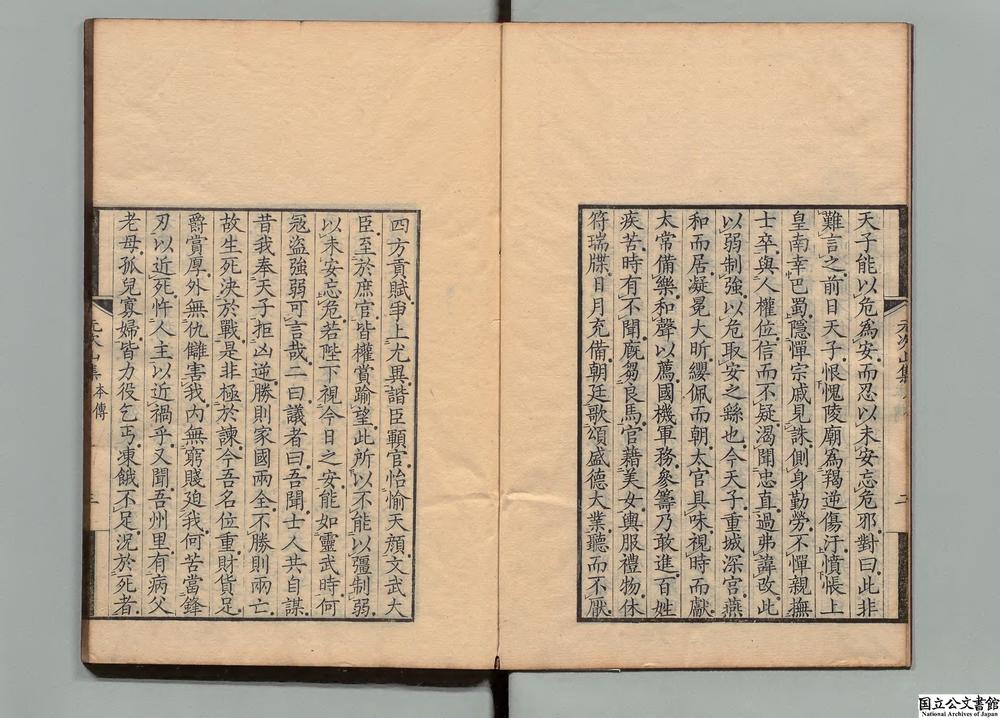 天子能以危爲安而忍以未安忘危邪對曰此非
難言之前日天子恨愧陵廟爲羯逆傷汙憤悵上
皇南幸巴蜀隱惲宗戚見誅側身勤勞不憚親撫
士卒與人權位信而不疑渴聞忠直過弗諱改此
以弱制強以危取安之繇也今天子重城深宮燕
和而居凝冕大昕纓佩而朝太官具味視時而獻
太常備樂和聲以薦國機軍務參籌乃敢進百姓
疾苦時有不聞廐芻良馬官籍美女輿服禮物休
符瑞牒日月充備朝廷歌頌盛德大業聽而不厭
元次山集
二
四方貢賦爭上尤異諧臣顐官怡愉天顏文武大
臣至於庶官皆權賞踰望此所以不能以彊制弱
以未安忘危若陛下視今日之安能如靈武時何
冦盜強弱可言哉二曰議者曰吾聞士人共自謀
昔我奉天子拒凶逆勝則家國兩全不勝則兩亡
故生死決於戰是非極於諫今吾名位重財貨足
爵賞厚外無仇讎害我內無窮賤廹我何苦當鋒
刃以近死忤人主以近禍乎又聞吾州里有病父
老母孤兒寡婦皆力役乞丐凍餓不足況於死者
元次山集 本傳
三
国立公文書館
National Archives of Japan